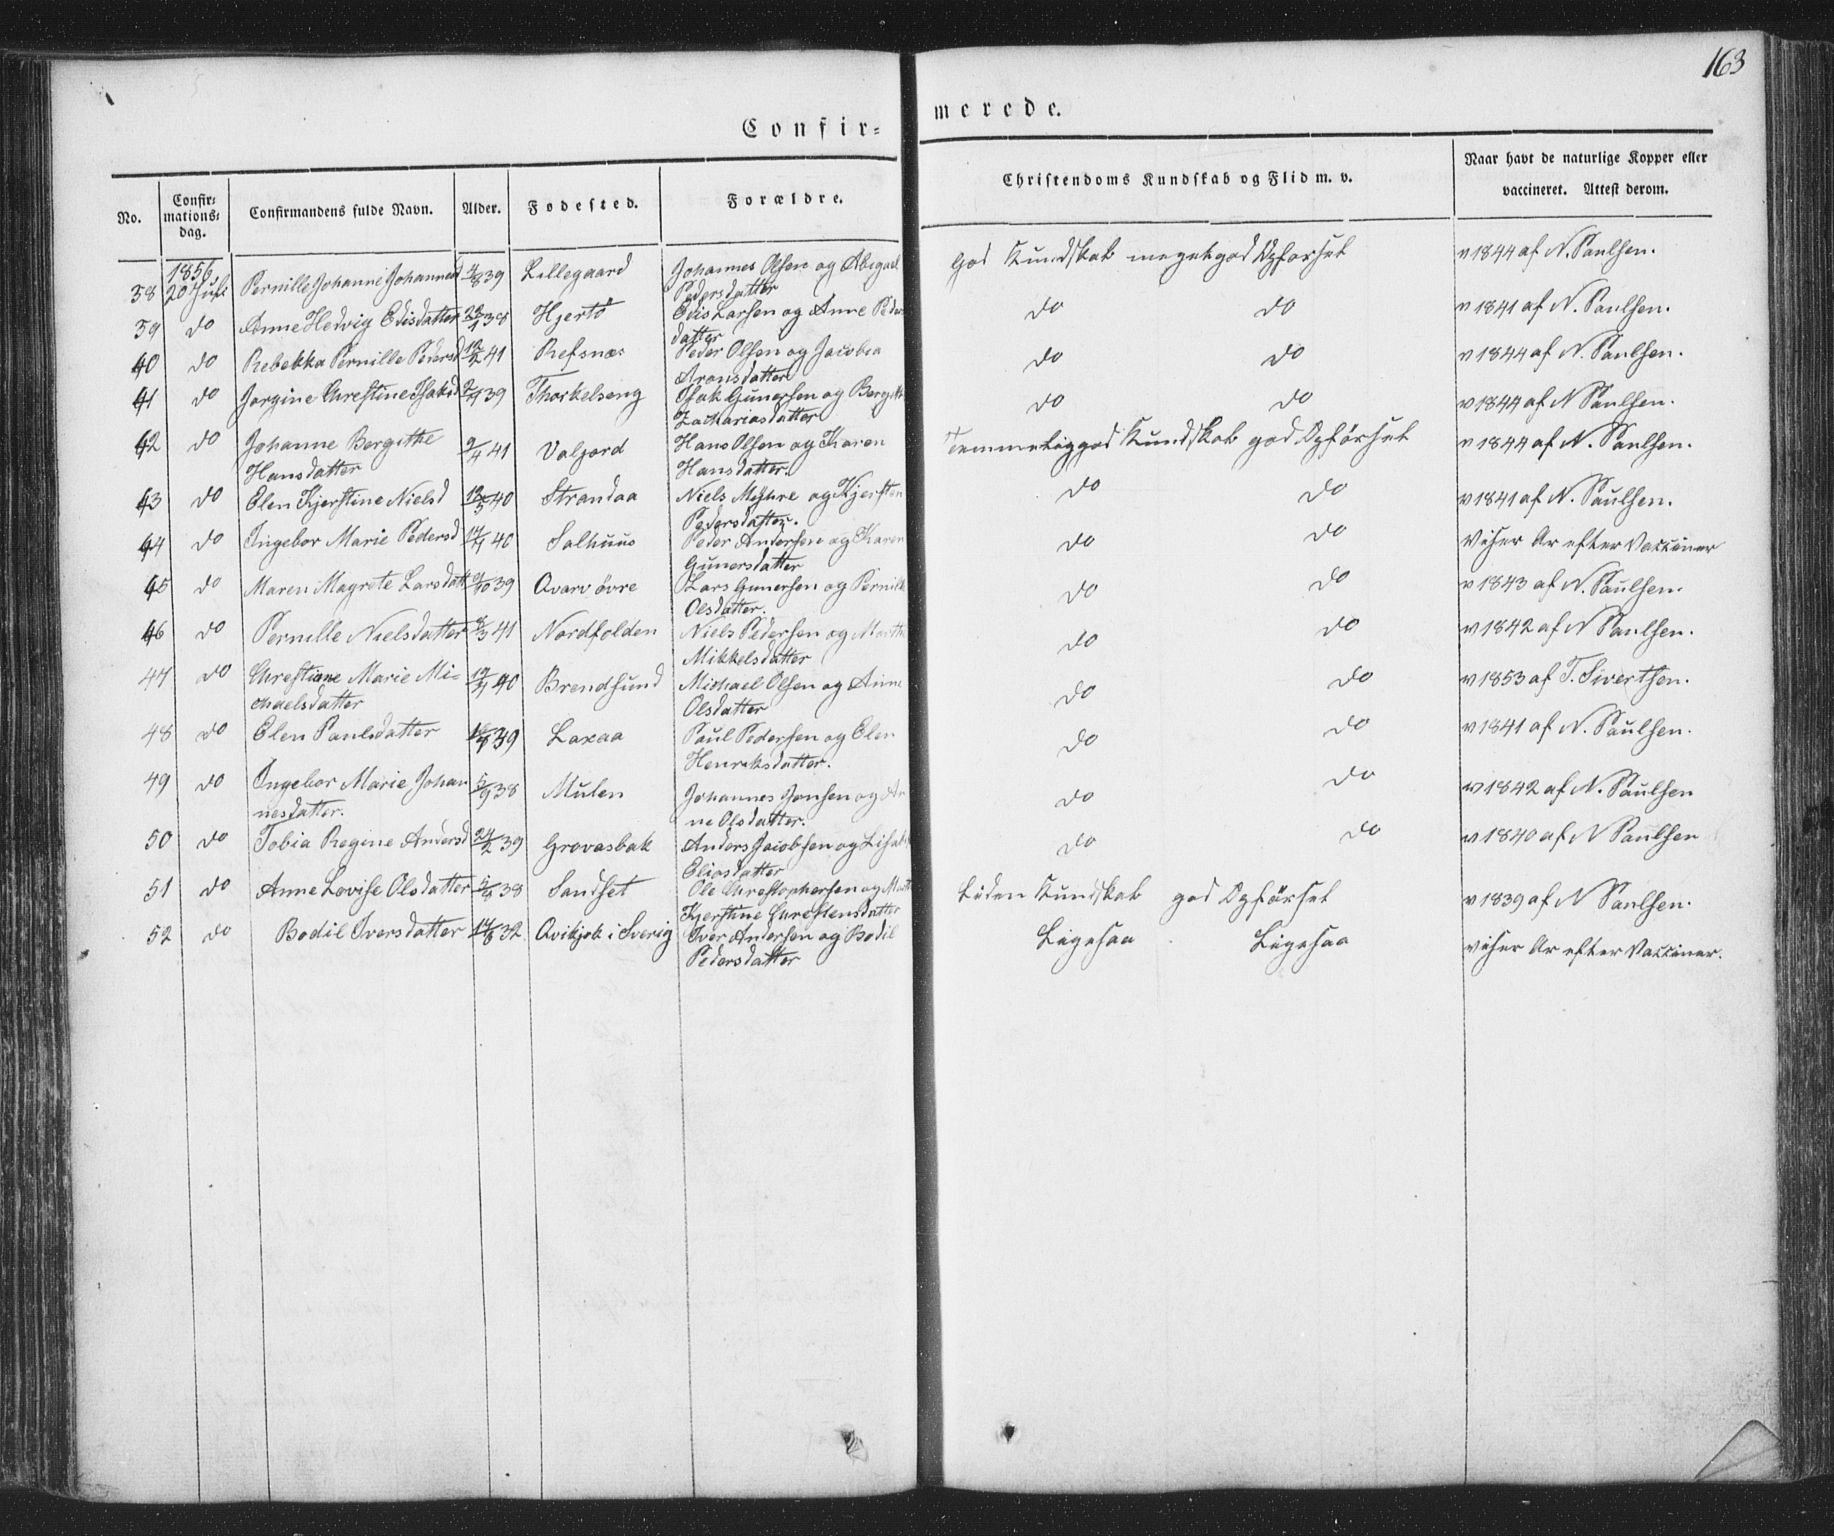 163
Confir= merede.
No. Confir-mations-dag. Confirmandens fulde Navn. Alder. Fødested. Forældre. Christendoms Kundskab og Flid m. v. Naar havt de naturlige Kopper eller vaccineret. Attest derom.
38 1856 20 Juli Pernille Johanne Johannesd 39 Lillegaard Johannes Olsen og Abigael God Kundskab meget god Opførsel v 1844 af N. Paulsen.
Pedersdatter
39 do Anne Hedvig Edisdatter 38 Hjertö Edis Larsen og Anne Peders do do v 1841 af N. Paulsen.
datter
40 do Rebekka Pernille Pedersd 41 Refsnæs Peder Olsen og Jacobia do do v 1844 af N. Paulsen.
Aronsdatter
41 do Jorgine Christine Isaksd 39 Thorkelseng Isak Gunersen og Bergith do do v 1844 af N Paulsen.
Zachariasdatter
42 do Johanne Bergithe 9/4 41 Valjord Hans Olsen og Karen Temmelig god Kundskab god Opførsel v 1844 af N. Paulsen.
Hansdatter Hansdatter.
43 do Elen Kjerstine Nielsd 40 Strandaa Niels og Kjersten do do v 1841 af N. Paulsen.
Pedersdatter.
44 do Ingebor Marie Pedersd 40 Salhuus Peder Andersen og Karen do do Viser Ar efter Vacciner
Gunersdatter
45 do Maren Magrete Larsdatt 39 Qvarv övre Lars Gunersen og Pernill do do v 1843 af N. Paulsen.
Olsdatter.
46 do Pernille Nielsdatter 41 Nordfolden Niels Pedersen og Marth do do v 1842 af N Paulsen.
Mikkelsdatter
47 do Christiane Marie Mi- 40 Brendsund Michael Olsen og Anne do do v 1853 af T. Sivertsen.
chaelsdatter Olsdatter
48 do Elen Paulsdatter 39 Laxaa Paul Pedersen og Elen do do v 1841 af N. Paulsen.
Henriksdatter.
49 do Ingebor Marie Johan 5/9 38 Mulen Johannes Jensen og An do do v 1842 af N. Paulsen
nesdatter. ne Olsdatter.
50 do Tobia Regine Andersd 24/2 39 Grovasbak Anders Jacobsen og Lisab do do v 1840 af N Paulsen
Eliasdatter
51 do Anne Lovise Olsdatter 38 Sandset Ole Christophersen og Marth Liden Kundskab god Opførsel v 1839 af N Paulsen.
Kjerstine Christensdatter
52 do Bodil Iversdatter 32 Qvikjok i Sverig Iver Andersen og Bodil Ligesaa Ligesaa viser Ar efter Vacciner.
Pedersdatter